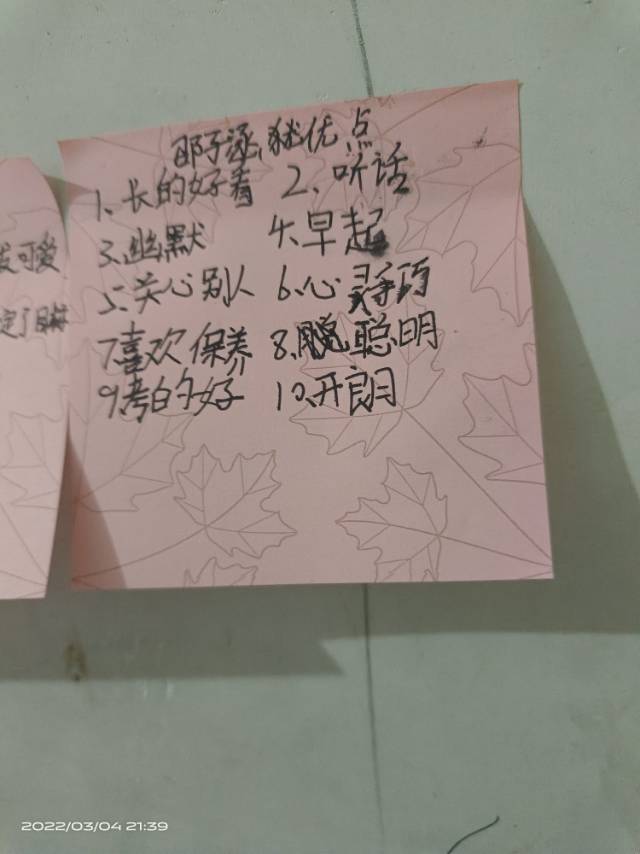 优点
1、长的好看 2、听话
3、幽默 4、早起
5、关心别人 6、心
7喜欢保养 8、聪明
9、考的好 10、开朗
可爱
2022/03/04 21:39